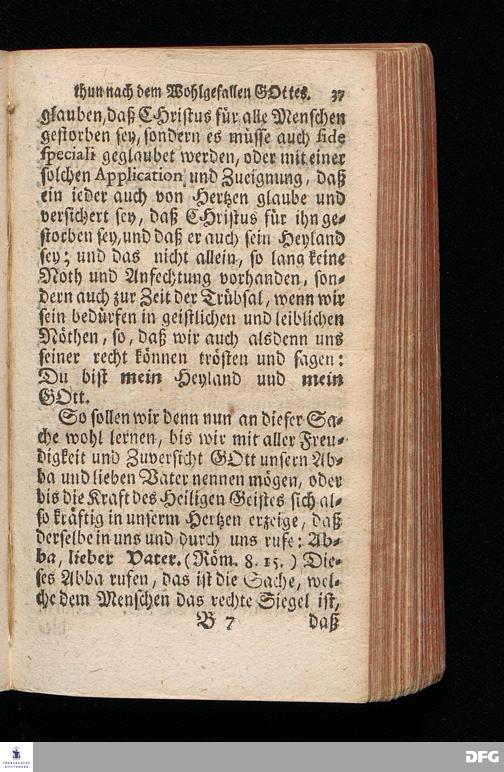 thun nach dem Wohlgefallen GOttes. 37
glauben, daß CHristus für alle Menschen
gestorben sey, sondern es müsse auch fide
speciali geglaubet werden, oder mit einer
solchen Application und Zueignung, daß
ein ieder auch von Hertzen glaube und
versichert sey, daß CHristus für ihn ge-
storben sey, und daß er auch sein Heyland
sey; und das nicht allein, so lang keine
Noth und Anfechtung vorhanden, son-
dern auch zur Zeit der Trübsal, wenn wir
sein bedürfen in geistlichen und leiblichen
Nöthen, so, daß wir auch alsdenn uns
seiner recht können trösten und sagen:
Du bist mein Heyland und mein
GOtt.
So sollen wir denn nun an dieser Sa-
che wohl lernen, bis wir mit aller Freu-
digkeit und Zuversicht GOtt unsern Ab-
ba und lieben Vater nennen mögen, oder
bis die Kraft des Heiligen Geistes sich al-
so kräftig in unserm Hertzen erzeige, daß
derselbe in uns und durch uns rufe: Ab-
ba, lieber Vater. (Röm. 8. 15.) Die-
ses Abba rufen, das ist die Sache, wel-
che dem Menschen das rechte Siegel ist,
B 7 daß
FRANCKESCHE
STIFTUNGEN
DFG